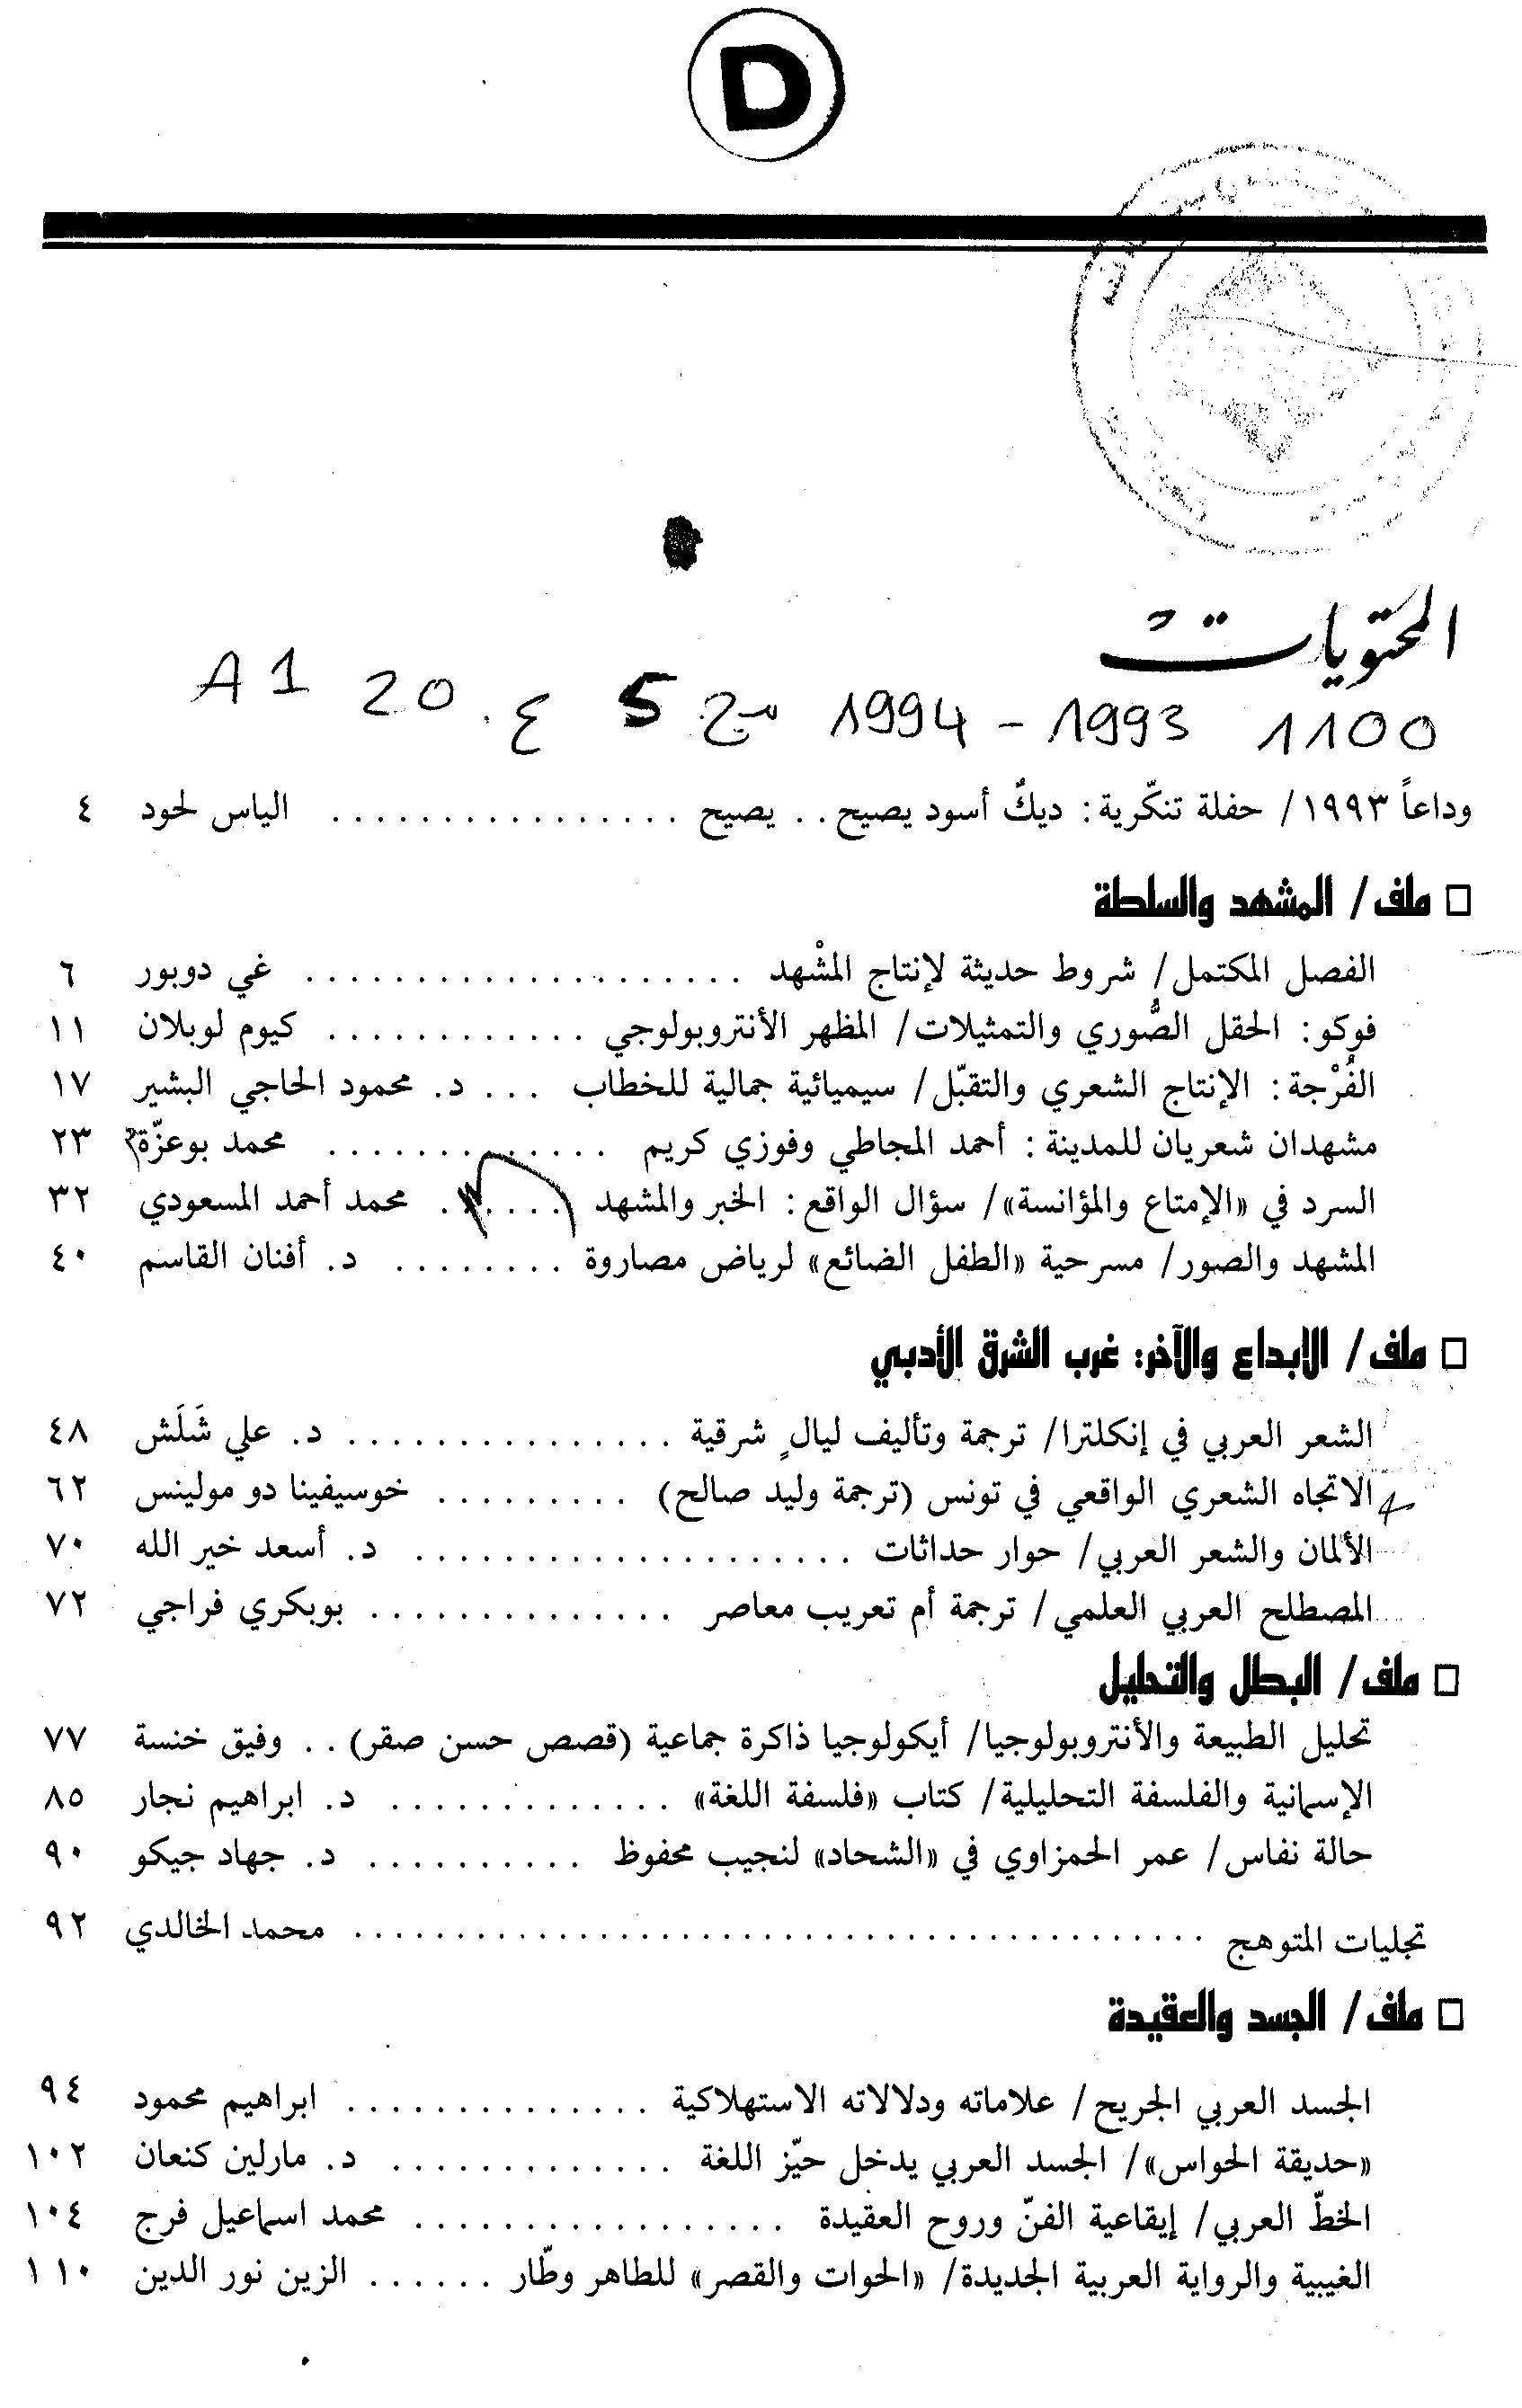 D
المحتويات
1100 1993 - 1994 مج 5 ع. 20 A1
وداعاً ١٩٩٣/ حفلة تنكّرية: ديكٌ أسود يصيح.. يصيح ................ الياس لحود ٤
□ ملف/ المشهد والسلطة
الفصل المكتمل/ شروط حديثة لإنتاج المشْهد .................... غي دوبور ٦
فوكو: الحقل الصُّوري والتمثيلات/ المظهر الأنتروبولوجي ............ كيوم لوبلان ١١
الفُرْجة: الإنتاج الشعري والتقبّل/ سيميائية جمالية للخطاب ... د. محمود الحاجي البشير ١٧
مشهدان شعريان للمدينة: أحمد المجاطي وفوزي كريم ............. محمد بوعزّة ٢٣
السرد في «الإمتاع والمؤانسة»/ سؤال الواقع: الخبر والمشهد ...... محمد أحمد المسعودي ٣٢
المشهد والصور/ مسرحية «الطفل الضائع» لرياض مصاروة ........ د. أفنان القاسم ٤٠
□ ملف/ الابداع والآخر: غرب الشرق الأدبي
الشعر العربي في إنكلترا/ ترجمة وتأليف ليالٍ شرقية ............... د. علي شَلَش ٤٨
الاتجاه الشعري الواقعي في تونس (ترجمة وليد صالح) .......... خوسيفينا دو مولينس ٦٢
الألمان والشعر العربي/ حوار حداثات .................... د. أسعد خير الله ٧٠
المصطلح العربي العلمي/ ترجمة أم تعريب معاصر .............. بوبكري فراجي ٧٢
□ ملف/ البطل والتحليل
تحليل الطبيعة والأنتروبولوجيا/ أيكولوجيا ذاكرة جماعية (قصص حسن صقر) .. وفيق خنسة ٧٧
الإسمانية والفلسفة التحليلية/ كتاب «فلسفة اللغة» ............. د. ابراهيم نجار ٨٥
حالة نفاس/ عمر الحمزاوي في «الشحاد» لنجيب محفوظ .......... د. جهاد جيكو ٩٠
تجليات المتوهج .......................................... محمد الخالدي ٩٢
□ ملف/ الجسد والعقيدة
الجسد العربي الجريح/ علاماته ودلالاته الاستهلاكية .............. ابراهيم محمود ٩٤
«حديقة الحواس»/ الجسد العربي يدخل حيّز اللغة ............. د. مارلين كنعان ١٠٢
الخطّ العربي/ إيقاعية الفنّ وروح العقيدة ................. محمد اسماعيل فرج ١٠٤
الغيبية والرواية العربية الجديدة/ «الحوات والقصر» للطاهر وطّار ...... الزين نور الدين ١١٠